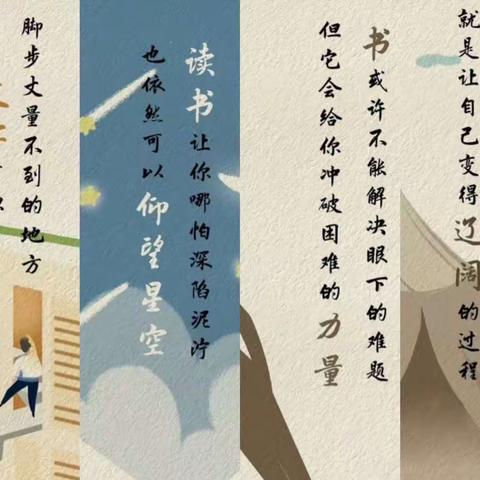 脚步丈量不到的地方
读书让你哪怕深陷泥泞
也依然可以仰望星空
书或许不能解决眼下的难题
但它会给你冲破困难的力量
就是让自己变得辽阔的过程